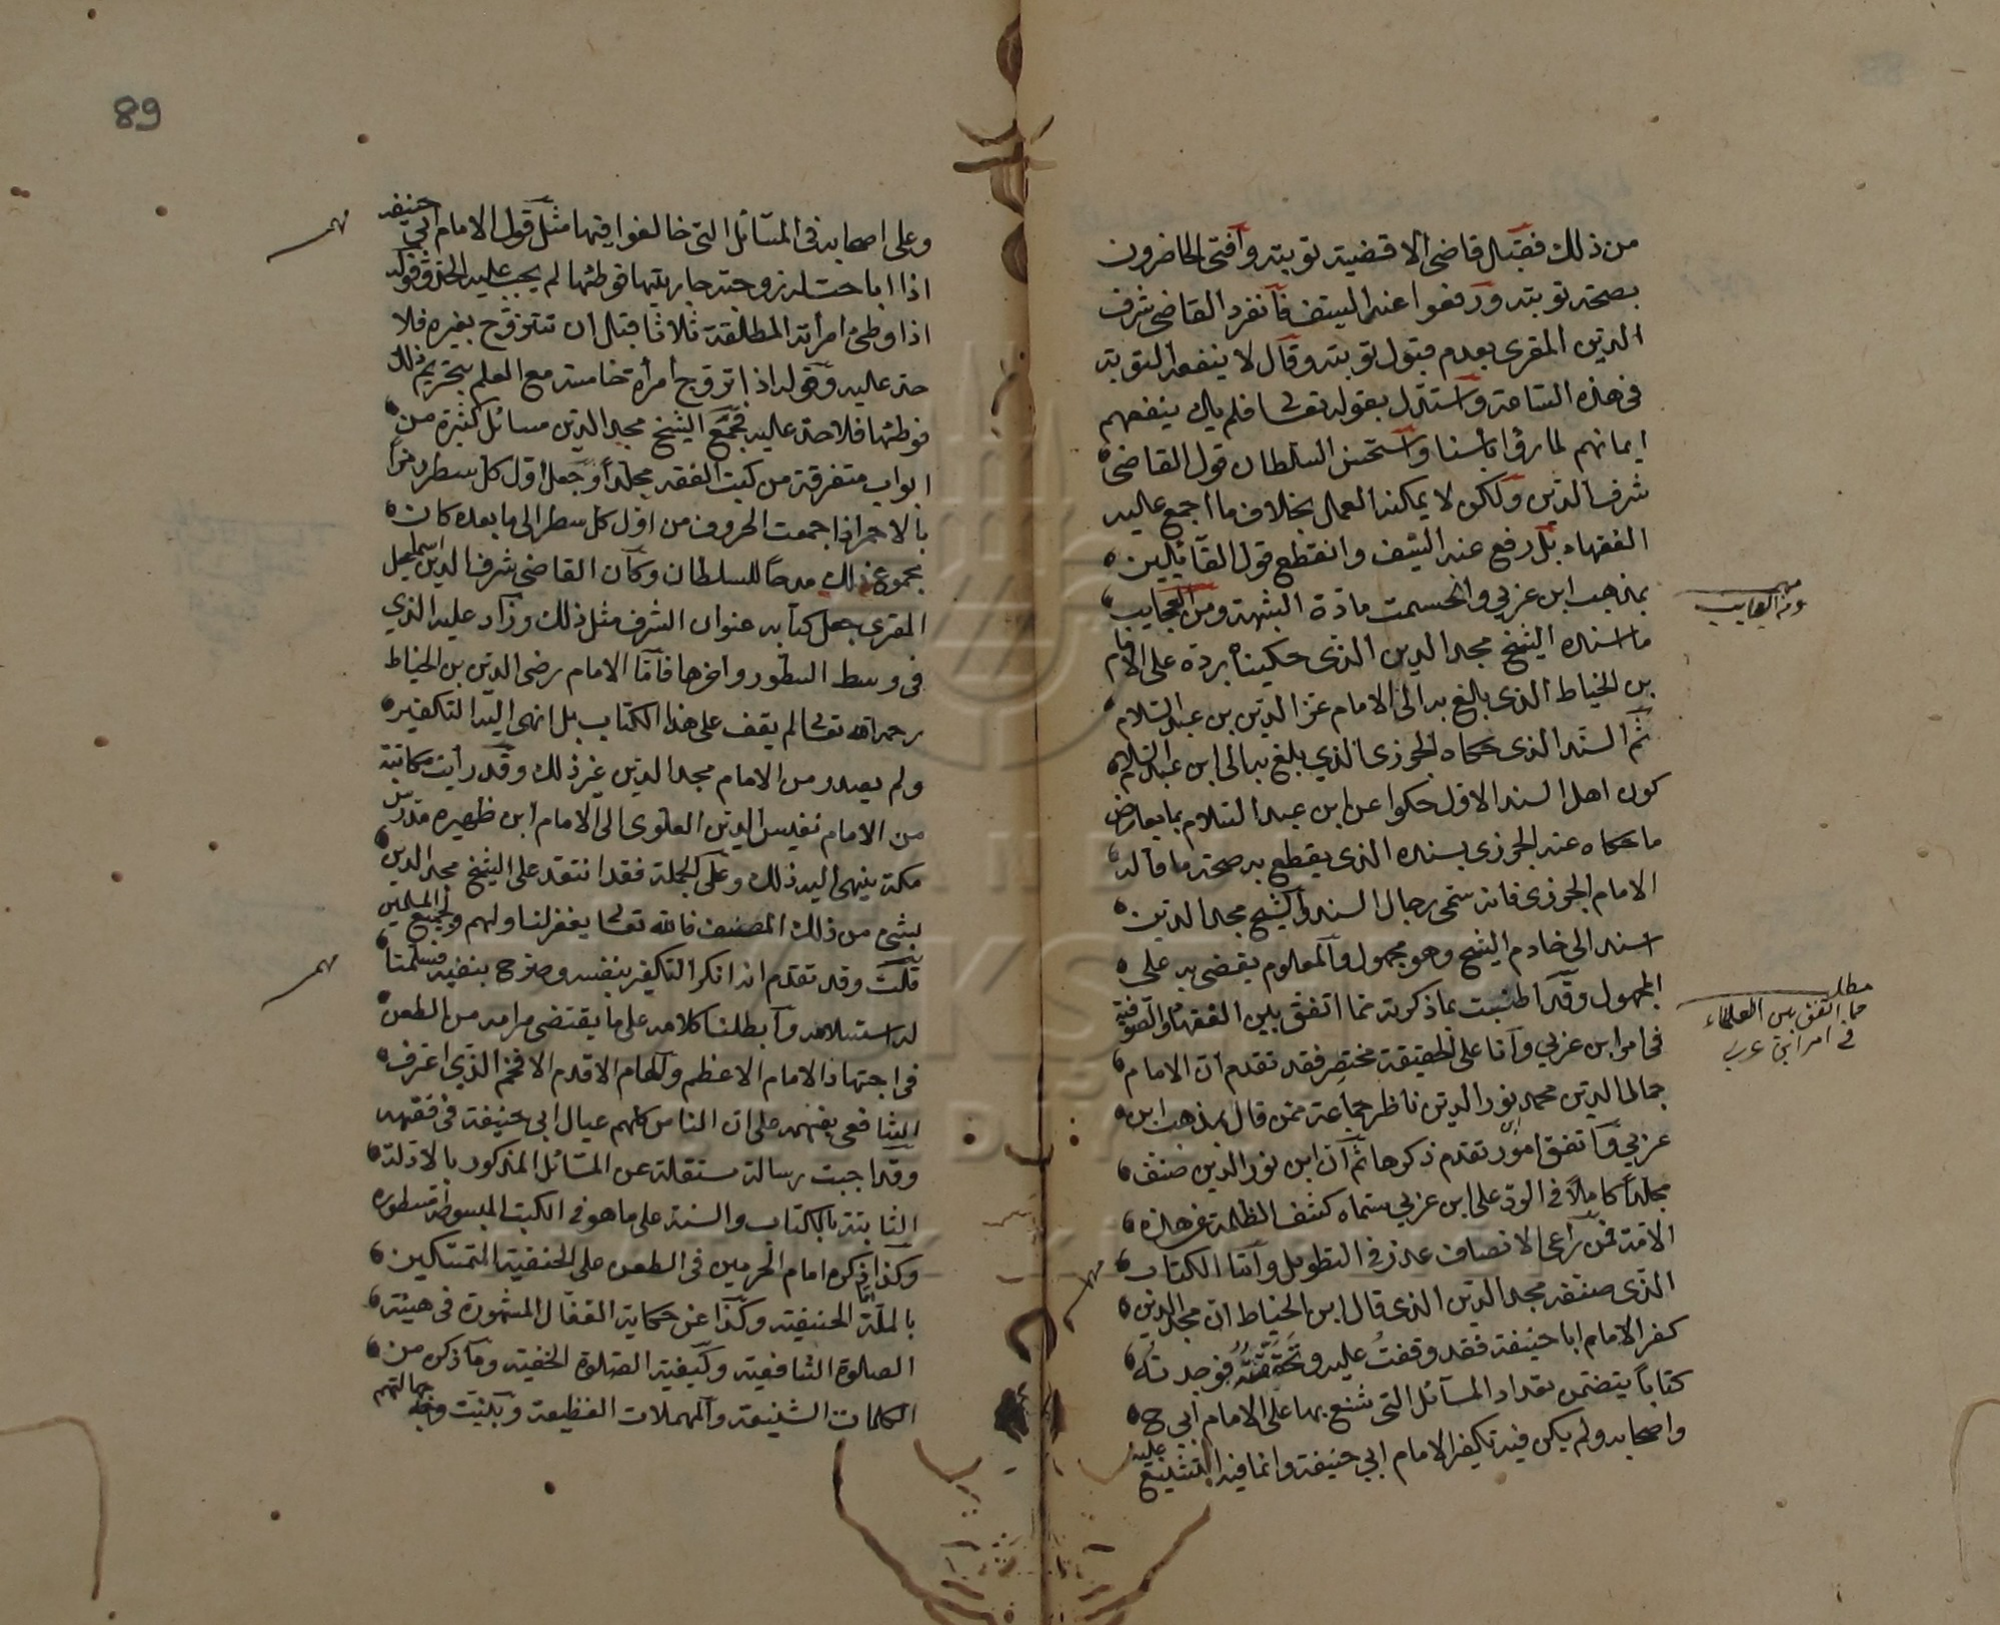 من ذلك فقبل قاضي الاقضية توبته وافتى الحاضرون
بصحة توبته ورفعوا عنه السيف فانفرد القاضي شرف
الدين المقرى بعدم قبول توبته وقال لا ينفعه التوبة
في هذه الساعة واستدل بقوله تعالى فلم يك ينفعهم
ايمانهم لما رؤا باسنا واستحسن السلطان قول القاضي
شرف الدين ولكن لا يمكنه العمل بخلاف ما اجمع عليه
الفقهاء بل رفع عنه السيف وانقطع قول القائلين
بمذهب ابن عربي وانحسمت مادة الشبهة ومن العجايب
ما اسنده الشيخ مجد الدين الذى حكيناه برده على الامام
بن الخياط الذى بالغ به الى الامام عز الدين بن عبد السلام
ثم السند الذى حكاه الجوزى الذي بلغ به الى ابن عبد السلام
كون اهل السند الاول حكوا عن ابن عبد السلام بما يعارض
ما حكاه عنه الجوزى بسنده الذى يقطع به صحة ما قاله
الامام الجوزى فانه سمى رجال السند والشيخ مجد الدين
اسند الى خادم الشيخ وهو مجهول والمعلوم يقضى به على
المجهول وقد اطنبت بما ذكرته مما اتفق بين الفقهاء والصوفية
في امر ابن عربي وانا على الحقيقة مختصر فقد تقدم ان الامام
جمال الدين محمد نور الدين ناظر جماعة ممن قال بمذهب ابن
عربي واتفق امور تقدم ذكرها ثم ان ابن نور الدين صنف
مجلدا كاملا في الرد على ابن عربي سماه كشف الظلمة عن هذه
الامة فمن راعى الانصاف عذر في التطويل واما الكتاب
الذى صنفه مجد الدين الذى قال ابن الخياط ان مجد الدين
كفر الامام ابا حنيفة فقد وقفت عليه وتحققته فوجدته
كتابا يتضمن تعداد المسائل التى شنع بها على الامام ابي ح
واصحابه ولم يكن فيه تكفير الامام ابي حنيفة وانما فيه التشنيع عليه
ومن العجايب
مطلب
فيما اتفق بين العلماء
في امر ابن عربي
مهم
89
وعلى اصحابه في المسائل التى خالفوا فيها مثل قول الامام ابي حنيفه
اذا اباحت له زوجته جاريتها فوطئها لم يجب عليه الحد وقوله
اذا وطئ امرأته المطلقة ثلاثا قبل ان تتزوج بغيره فلا
حد عليه وقوله اذا تزوج امرأة خامسة مع العلم بتحريم ذلك
فوطئها فلا حد عليه فجمع الشيخ مجد الدين مسائل كثيرة من
ابواب متفرقة من كتب الفقه مجلدا وجعل اول كل سطر حرفا
بالاحمر اذا جمعت الحروف من اول كل سطر الى ما بعده كان
مجموع ذلك مدحا للسلطان وكان القاضي شرف الدين اسمعيل
المقرى جعل كتابه عنوان الشرف مثل ذلك وزاد عليه الذي
في وسط السطور واخرها فاما الامام رضى الدين بن الخياط
رحمه الله تعالى لم يقف على هذا الكتاب بل انهى اليه التكفير
ولم يصدر من الامام مجد الدين غير ذلك وقد رأيت مكاتبة
من الامام نفيس الدين العلوى الى الامام ابن ظهيره مدرس
مكة ينهى اليه ذلك وعلى الجملة فقد انتقد على الشيخ مجد الدين
بشئ من ذلك المصنف فالله تعالى يغفر لنا ولهم ولجميع المسلمين
قلت وقد تقدم انه انكر التكفير بنفسه وصرح بنفيه فسلمنا
له استسلامه وابطلنا كلامه على ما يقتضى مرامه من الطعن
في اجتهاد الامام الاعظم والهمام الاقدم الافخم الذي اعترف
الشافعي بفهمه على ان الناس كلهم عيال ابي حنيفة في فقهه
وقد اجبت رسالة مستقلة عن المسائل المذكور بالادلة
الثابتة بالكتاب والسنة على ما هو في الكتب المبسوطة مسطوره
وكذا ما ذكره امام الحرمين في الطعن على الحنفية المتمسكين
بالملة الحنيفية وكذا عن حكاية القفال المشهورة في هيئة
الصلوة الشافعية وكيفية الصلوة الحنفية وما ذكره من
الكلمات الشنيعة والمهملات الفظيعة وبينت وجه جهالتهم
مهم
مهم